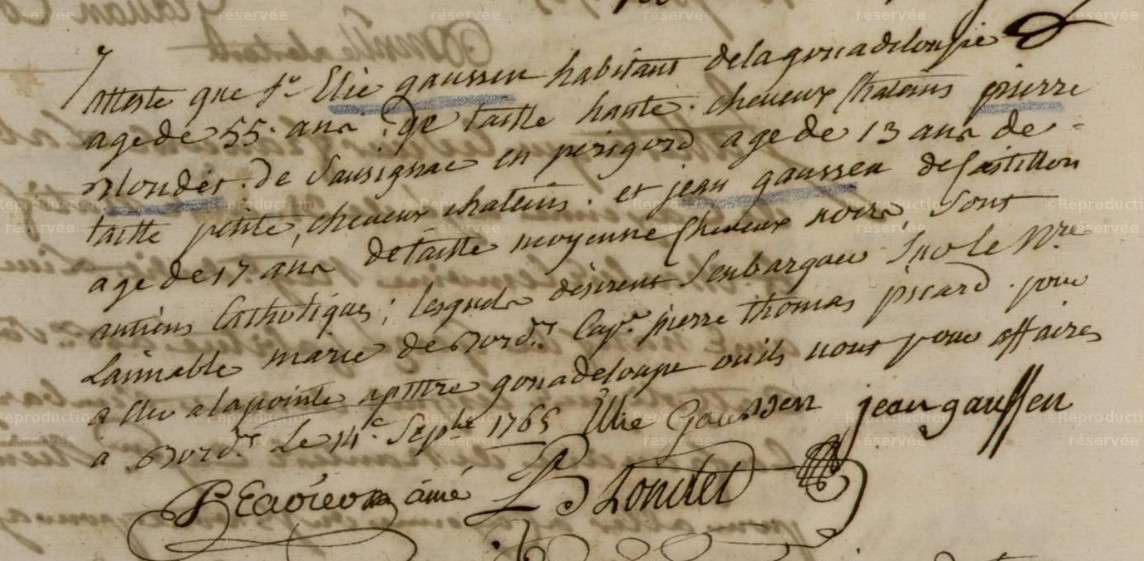 J'atteste que Sr Elie gaussen habitant de la gouadeloupe
age de 55 ans de taille haute cheveux Chatains pierre
Blondet de Sausignac en perigord age de 13 ans de
taille petite, cheveux chatains et jean gaussen de Castillon
age de 17 ans de taille moyenne Cheveux noirs, sont
antiens Catholiques; lesquels désirent S'enbarquer Sur le Nre
Laimable marie de Bordx Capne pierre thomas picard pour
aller a la pointe apittre gouadeloupe ou ils vont pour affaires
a Bordx Le 14e Septbre 1765 Elie Gaussen jean gaussen
ainé Blondet